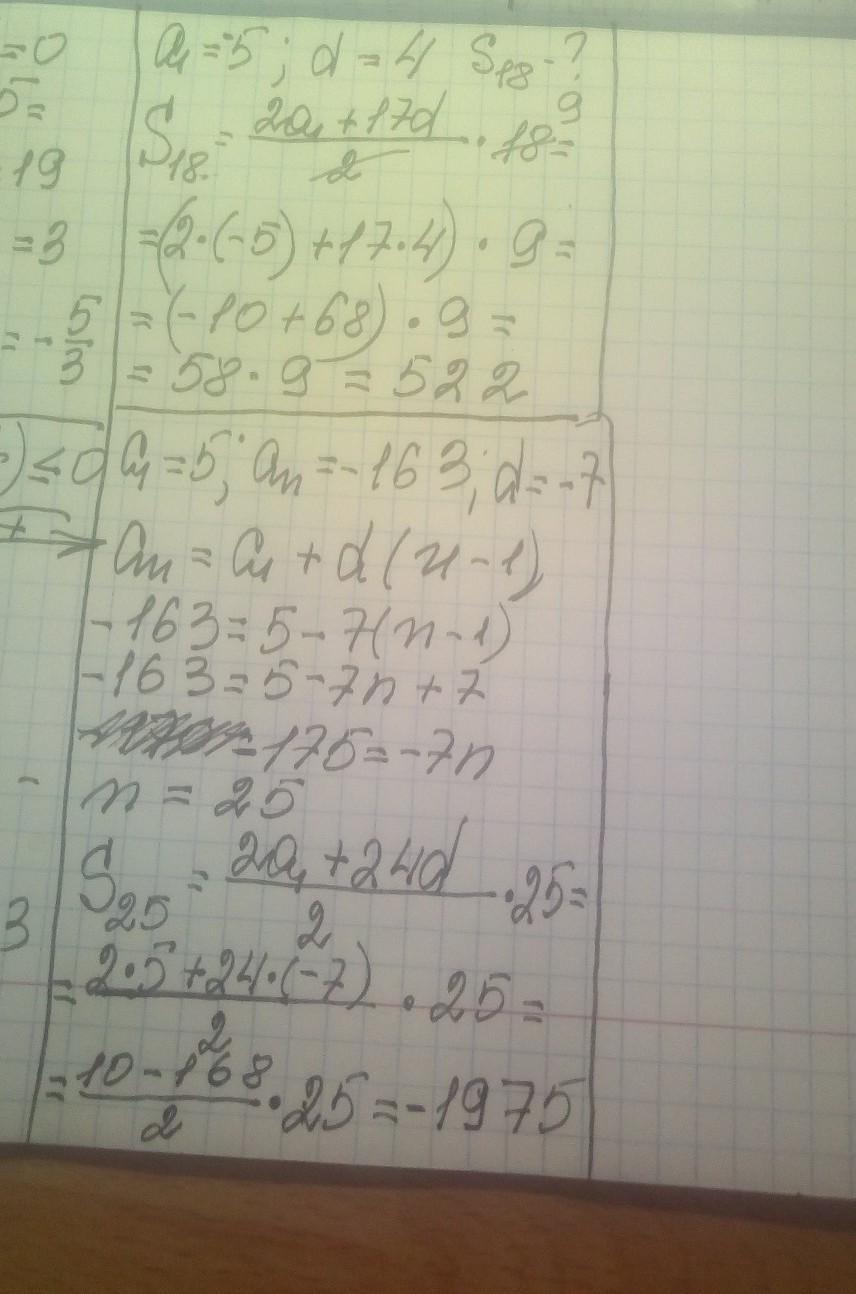 =0
5=
19
=3
= -5/3
) ≤ 0
+
-
3
a₁ = -5; d = 4 S₁₈ - ?
S₁₈ = (2a₁ + 17d)/2 · 18 = 9
= (2·(-5) + 17·4) · 9 =
= (-10 + 68) · 9 =
= 58 · 9 = 522
a₁ = 5; aₙ = -163; d = -7
aₙ = a₁ + d(n - 1)
-163 = 5 - 7(n - 1)
-163 = 5 - 7n + 7
-175 = -7n
n = 25
S₂₅ = (2a₁ + 24d)/2 · 25 =
= (2·5 + 24·(-7))/2 · 25 =
= (10 - 168)/2 · 25 = -1975